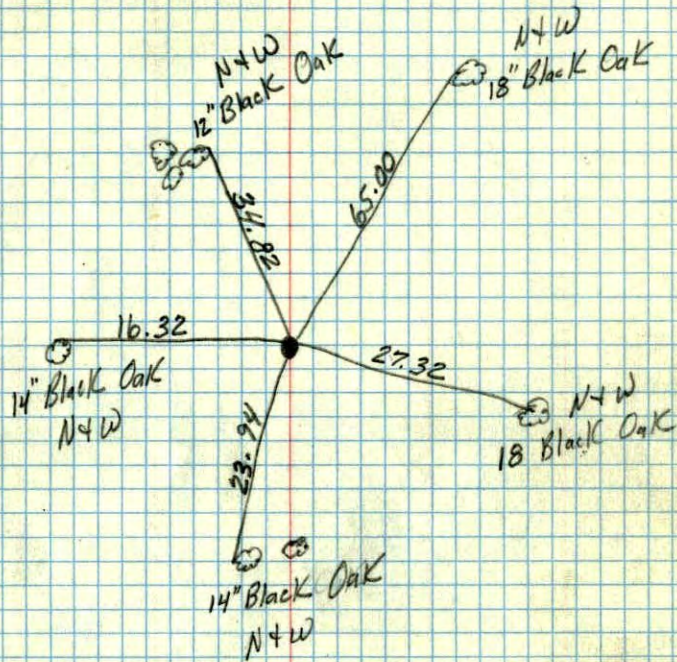 N+W
12" Black Oak
N+W
18" Black Oak
34.82
65.00
16.32
14" Black Oak
N+W
27.32
N+W
18 Black Oak
23.94
14" Black Oak
N+W